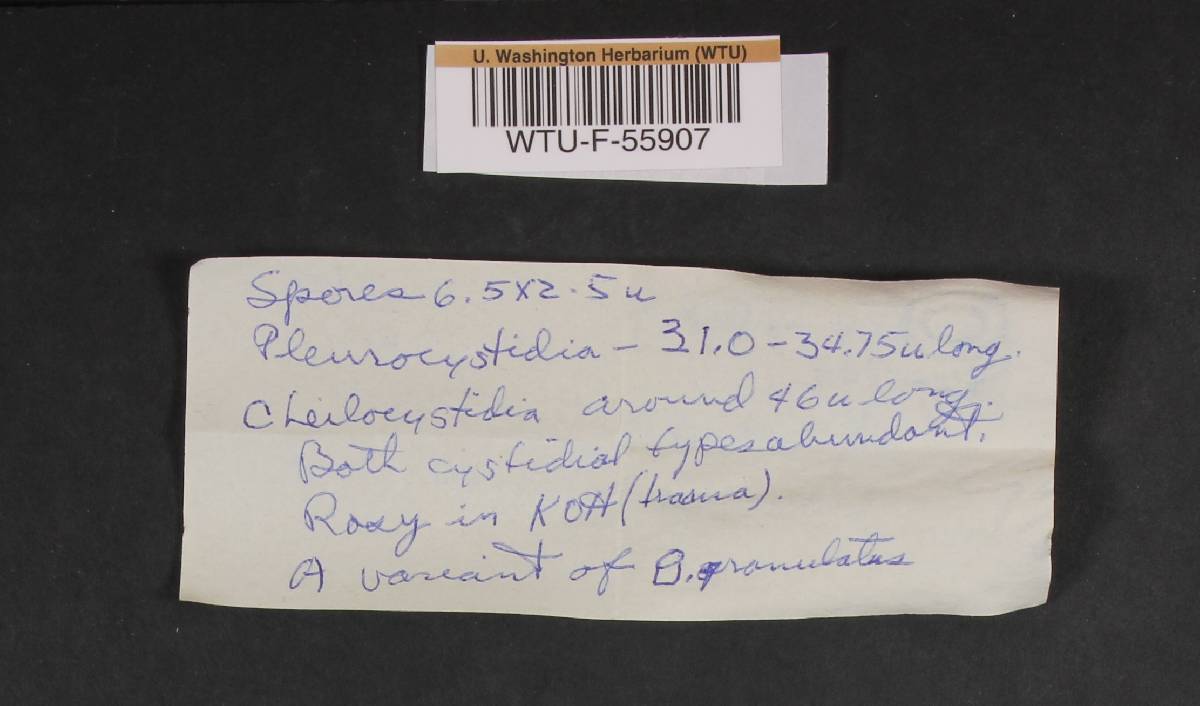 U. Washington Herbarium (WTU)
WTU-F-55907
Spores 6.5x2.5u
Pleurocystidia - 31.0 - 34.75u long.
Cheilocystidia around 46u long.
Both cystidial types abundant.
Rosy in KOH (trama).
A variant of B. granulatus